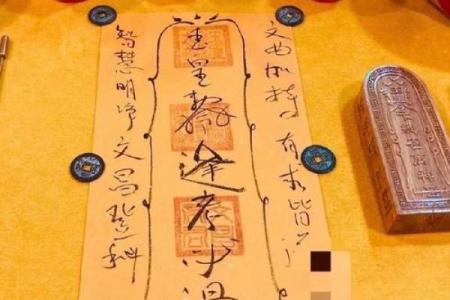 文曲加持有求皆
玉皇敕逢考必過
智慧明净文昌登科